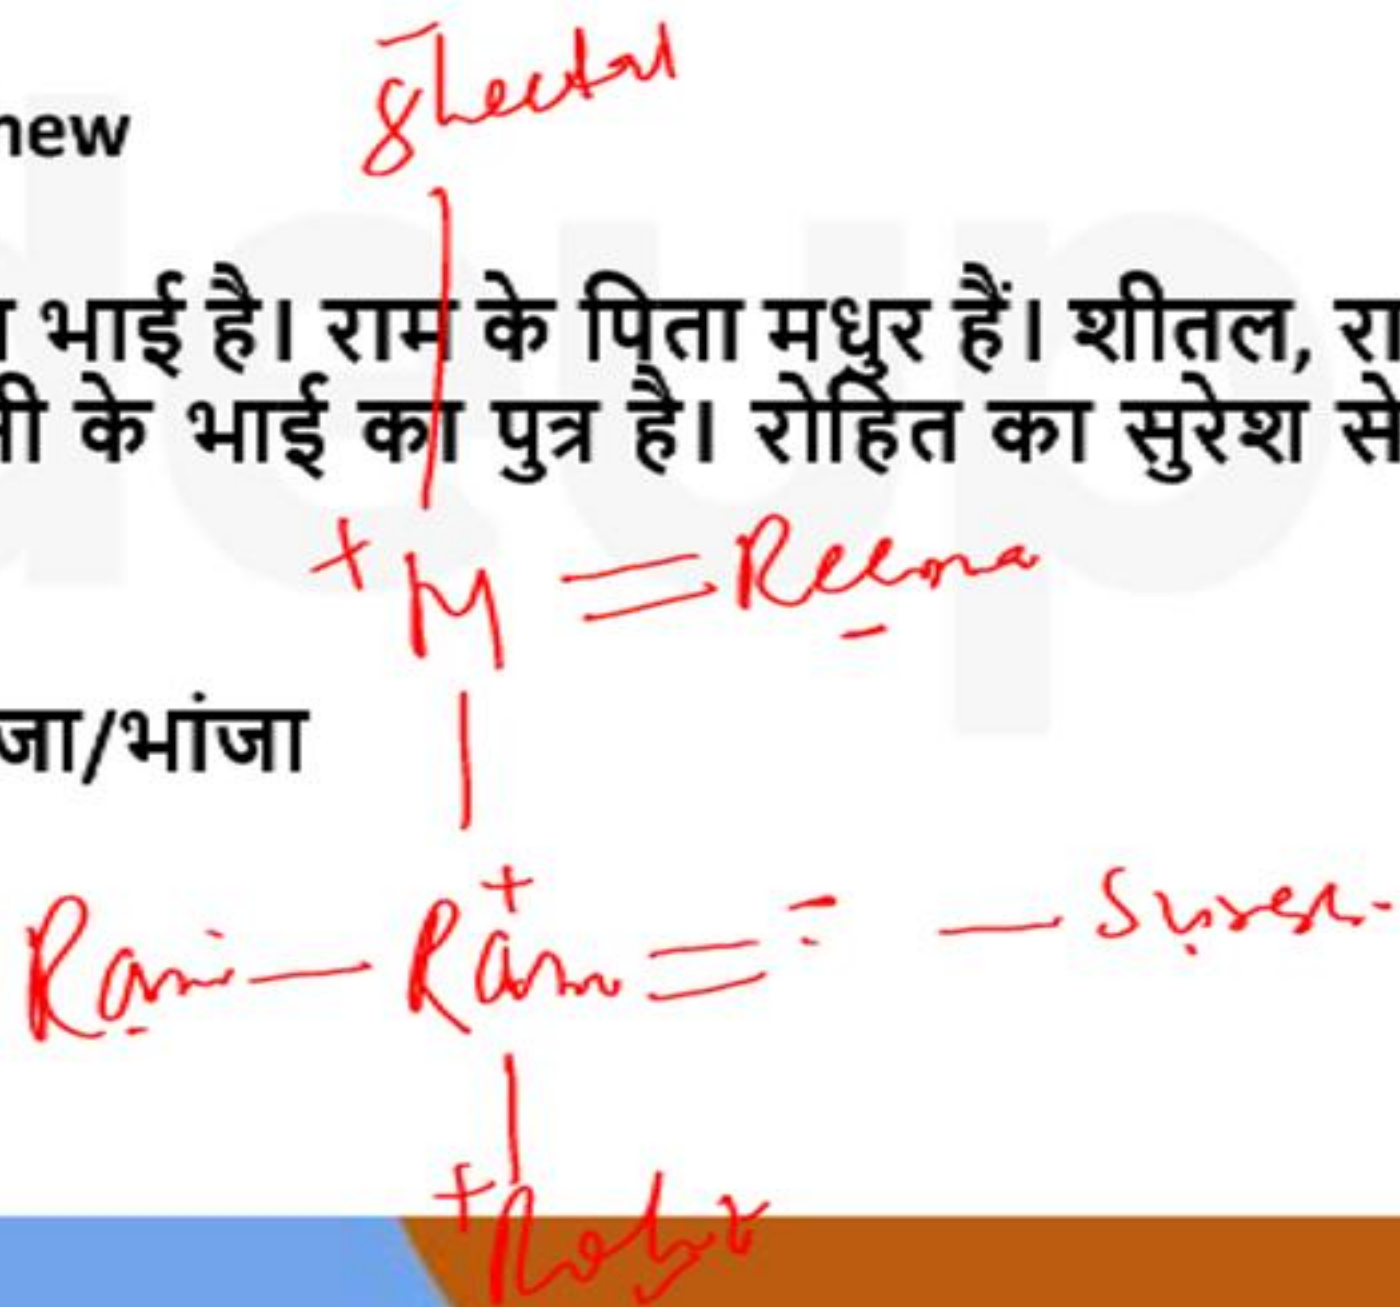 Sheetal
new
भाई है। राम के पिता मधुर हैं। शीतल, रा
ी के भाई का पुत्र है। रोहित का सुरेश से
+ M = Reema
-
जा/भांजा
Rani — Ram+ = - — Suresh
+ Rohit